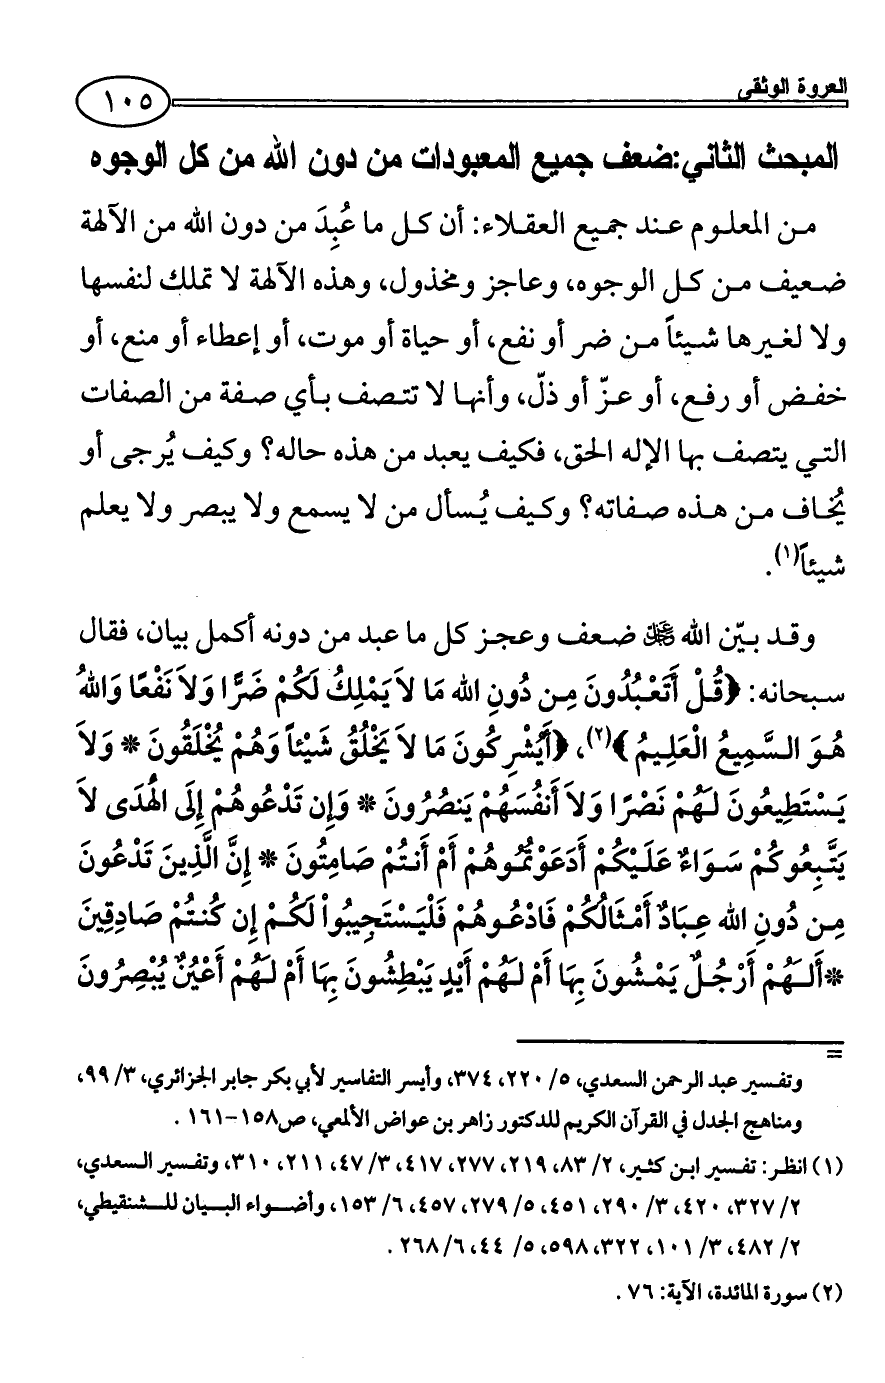 العروة الوثقى
١٠٥
المبحث الثاني:ضعف جميع المعبودات من دون الله من كل الوجوه
من المعلوم عند جميع العقلاء: أن كل ما عُبِدَ من دون الله من الآلهة
ضعيف من كل الوجوه، وعاجز ومخذول، وهذه الآلهة لا تملك لنفسها
ولا لغيرها شيئاً من ضر أو نفع، أو حياة أو موت، أو إعطاء أو منع، أو
خفض أو رفع، أو عزّ أو ذلّ، وأنها لا تتصف بأي صفة من الصفات
التي يتصف بها الإله الحق، فكيف يعبد من هذه حاله؟ وكيف يُرجى أو
يُخاف من هذه صفاته؟ وكيف يُسأل من لا يسمع ولا يبصر ولا يعلم
شيئاً(١).
وقد بيّن الله ﷻ ضعف وعجز كل ما عبد من دونه أكمل بيان، فقال
سبحانه: ﴿قُلْ أَتَعْبُدُونَ مِن دُونِ الله مَا لاَ يَمْلِكُ لَكُمْ ضَرًّا وَلاَ نَفْعًا وَاللهُ
هُوَ السَّمِيعُ الْعَلِيمُ﴾(٢)، ﴿أَيُشْرِكُونَ مَا لاَ يَخْلُقُ شَيْئاً وَهُمْ يُخْلَقُونَ * وَلاَ
يَسْتَطِيعُونَ لَهُمْ نَصْرًا وَلاَ أَنفُسَهُمْ يَنصُرُونَ * وَإِن تَدْعُوهُمْ إِلَى الْهُدَى لاَ
يَتَّبِعُوكُمْ سَوَاءٌ عَلَيْكُمْ أَدَعَوْتُمُوهُمْ أَمْ أَنتُمْ صَامِتُونَ * إِنَّ الَّذِينَ تَدْعُونَ
مِن دُونِ الله عِبَادٌ أَمْثَالُكُمْ فَادْعُوهُمْ فَلْيَسْتَجِيبُواْ لَكُمْ إِن كُنتُمْ صَادِقِينَ
*أَلَهُمْ أَرْجُلٌ يَمْشُونَ بِهَا أَمْ لَهُمْ أَيْدٍ يَبْطِشُونَ بِهَا أَمْ لَهُمْ أَعْيُنٌ يُبْصِرُونَ
=
وتفسير عبد الرحمن السعدي، ٥/ ٢٢٠، ٣٧٤، وأيسر التفاسير لأبي بكر جابر الجزائري، ٣/ ٩٩،
ومناهج الجدل في القرآن الكريم للدكتور زاهر بن عواض الألمعي، ص١٥٨-١٦١ .
(١) انظر: تفسير ابن كثير، ٢/ ٨٣، ٢١٩، ٢٧٧، ٤١٧، ٣/ ٤٧، ٢١١، ٣١٠، وتفسير السعدي،
٢/ ٣٢٧، ٤٢٠، ٣/ ٢٩٠، ٤٥١، ٥/ ٢٧٩، ٤٥٧، ٦/ ١٥٣، وأضواء البيان للشنقيطي،
٢/ ٤٨٢، ٣/ ١٠١، ٣٢٢، ٥٩٨، ٥/ ٤٤، ٦/ ٢٦٨ .
(٢) سورة المائدة، الآية: ٧٦ .